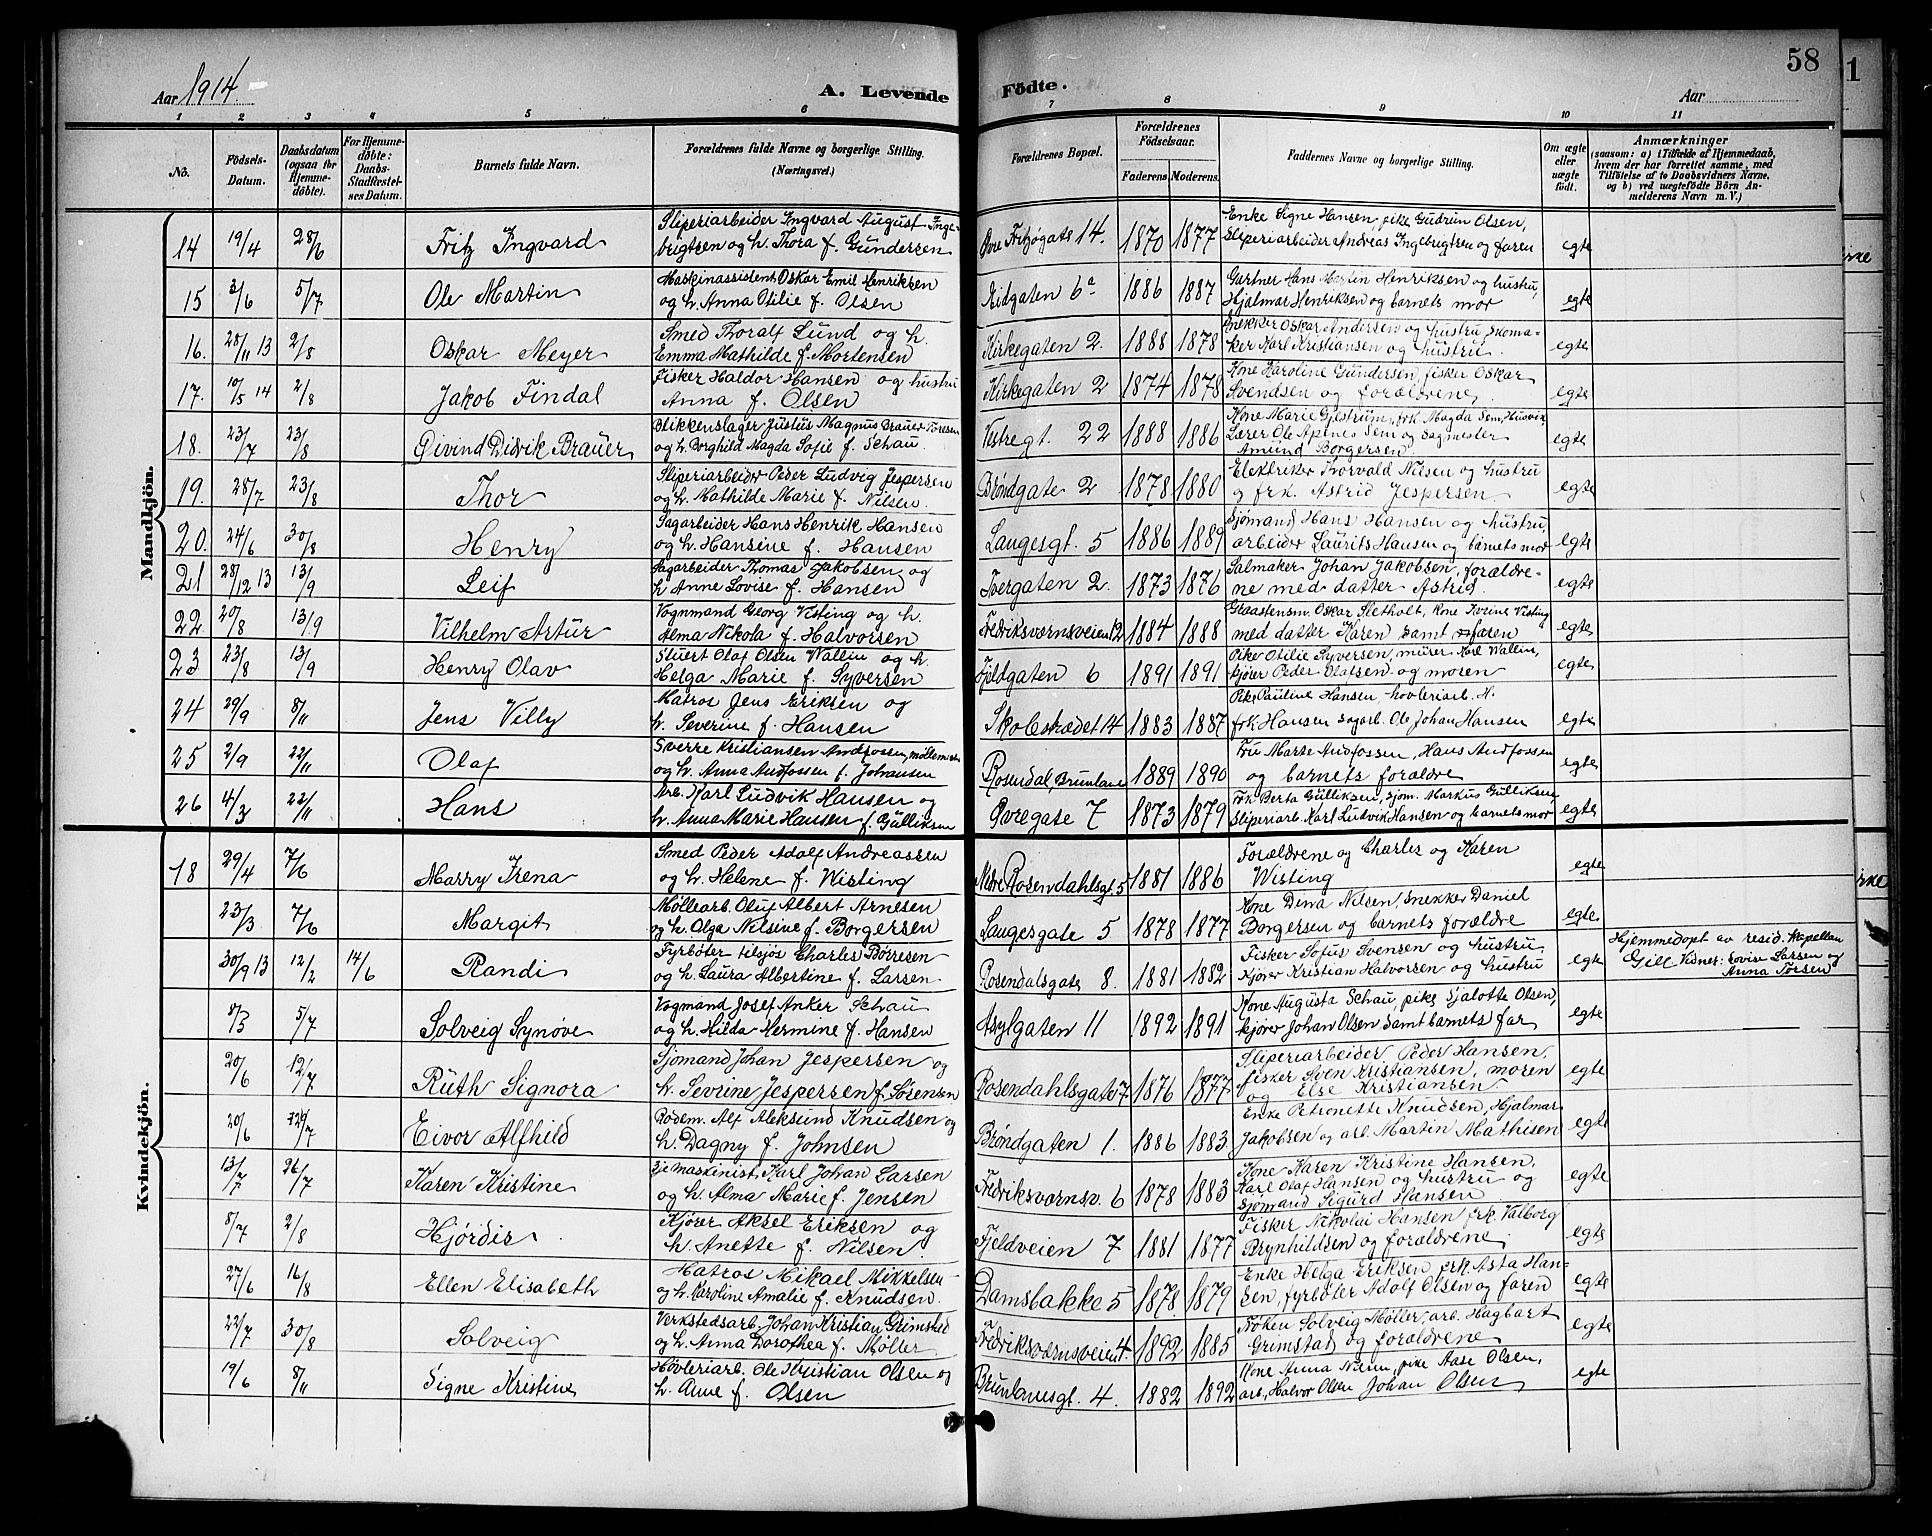 58
1
Aar 1914.
A. Levende Födte.
Aar
1 2 3 4 5 6 7 8 9 10 11
No.
Födsels-Datum.
Daabsdatum (ogsaa for Hjemmedöbte).
For Hjemmedöbte: Daabs-Stadfæstelses Datum.
Barnets fulde Navn.
Forældrenes fulde Navne og borgerlige Stilling. (Næringsvei.)
Forældrenes Bopæl.
Forældrenes Födselsaar.
Faderens. Moderens.
Faddernes Navne og borgerlig Stilling.
Om ægte eller uægte födt.
Anmærkninger
(saasom: a) i Tilfælde af Hjemmedaab, hvem der har forrettet samme, med Tilföielse af to Daabsvidners Navne, og b) ved uægtefödte Börn Anmelderens Navn m. V.)
Mandkjön.
14 19/4 28/6 Fritz Ingvard Sliperiarbeider Ingvard August Ingebrigtsen og h. Thora f. Gundersen Øvre Fritzøgate 14. 1870 1877 Enke Signe Hansen, pike Gudrun Olsen, Sliperiarbeider Andreas Ingebrigtsen og faren egte
15 3/6 5/7 Ole Martin Maskinassistent Oskar Emil Henriksen og h. Anna Otilie f. Olsen Kidgaten 6a 1886 1887 Gartner Hans Martin Henriksen og hustru, Hjalmar Henriksen og barnets mor egte
16. 28/11 13 2/8 Oskar Meyer Smed Thoralf Lund og h. Emma Mathilde f. Mortensen Kirkegaten 2. 1888 1878 Snekker Oskar Andersen og hustru, skomaker Karl Kristiansen og hustru. egte
17. 10/5 14 2/8 Jakob Findal Fisker Haldor Hansen og hustru Anna f. Olsen Kirkegaten 2 1874 1878 Kone Karoline Gundersen, fisker Oskar Svendsen og forældrene. egte
18. 23/7 23/8 Øivind Didrik Braüer Blikkenslager Justus Magnus Braüer Toresen og h. Borghild Magda Sofie f. Schau. Vestregt. 22 1888 1886 Kone Marie Gjestrüm, frk Magda Sem, Husvik, Lærer Ole Apenes Sem og sagmester Amund Borgersen egte
19. 28/7 23/8 Thor Sliperiarbeider Peder Ludvig Jespersen og h. Mathilde Marie f. Nilsen. Brøndgate 2 1878 1880 Elektriker Torvald Nilsen og hustru og frk. Astrid Jespersen egte
20. 24/6 30/8 Henry Sagarbeider Hans Henrik Hansen og h. Hansine f. Hansen Langesgt. 5 1886 1889 Sjømand Hans Hansen og hustru, arbeider Laurits Hansen og barnets mor egte
21 28/12 13 13/9 Leif Sagarbeider Thomas Jakobsen og h Anne Lovise f. Hansen Tvergaten 2. 1873 1876 Salmaker Johan Jakobsen, forældrene med datter Astrid. egte
22 20/8 13/9 Vilhelm Artur Vognmand Georg Visting og h. Alma Nikola f. Halvorsen Fredriksværnsveien 12 1884 1888 Graastensm. Oskar Sletholt, Kone Karine Visting med datter Karen samt faren egte
23 23/8 13/9 Henry Olav Stuert Olaf Olsen Wallin og h. Helga Marie f. Syversen Fjeldgaten 6 1891 1891 Pike Otilie Syversen, murer Karl Wallin, kjører Peder Olafsen og moren egte
24 29/9 8/11 Jens Villy Matros Jens Eriksen og h. Severine f. Hansen Skolestrædet 14 1883 1887 Pike Pauline Hansen, hovleriarb. H. frk Hansen sagarb. Ole Johan Hansen egte
25 2/9 22/11 Olaf Sverre Kristiansen Andfossen, møllemester og h. Anna Andfossen f. Johansen Rosendal, Brunlanes 1889 1890 Fru Marte Andfossen, Hans Andfossen og barnets forældre egte
26 4/3 22/11 Hans Arb. Karl Ludvik Hansen og h. Anna Marie Hansen f. Gulliksen Øvregate 7 1873 1879 Frk Berta Gulliksen, sjøm. Markus Gulliksen, sliperiarb Karl Ludvik Hansen og barnets mor egte
Kvindekjön.
18 29/4 7/6 Marry Irena Smed Peder Adolf Andreassen og h. Helene f. Wisting Nedre Rosendahlsgt. 5 1881 1886 Forældrene og Charles og Karen Wisting egte
23/3 7/6 Margit Møllearb. Oluf Albert Arnesen og h. Olga Nilsine f. Borgersen Langesgate 5 1878 1877 Kone Dina Nilsen, snekker Daniel Borgersen og barnets forældre egte
30/9 13 12/2 14/6 Randi Fyrbøter tilsjøs Charles Børresen og h. Laura Albertine f. Larsen Rosendalsgate 8. 1881 1882 Fisker Sofus Svensen og hustru kjører Kristian Halvorsen og hustru egte Hjemmedøpt av resid. Kapellan Gill Vidner: Lovise Larsen og Anna Torsen
8/3 5/7 Solveig Synøve Vogmand Josef Anker Schau og h. Hilda Hermine f. Hansen Asylgaten 11 1892 1891 Kone Augusta Schau, pike Sjalotte Olsen, kjører Johan Olsen samt barnets far egte
20/6 12/7 Ruth Signora Sjømand Johan Jespersen og h. Sevrine Jespersen f. Sørensen Rosendahlsgate 7 1876 1877 Sliperiarbeider Peder Hansen, fisker Sven Kristiansen, moren og Else Kristiansen egte
20/6 12/7 Eivor Alfhild Rodem. Alf Aleksund Knudsen og h. Dagny f. Johnsen Brøndgaten 1. 1886 1883 Enke Petronette Knudsen, Hjalmar Jakobsen og arb. Martin Mathisen egte
13/7 26/7 Karen Kristine 3je maskinist Karl Johan Larsen og h. Alma Marie f. Jensen Fredriksværnsv. 6 1878 1883 Kone Karen Kristine Hansen, Karl Olaf Hansen og hustru og sjømand Sigurd Hansen egte
8/7 2/8 Hjørdis Kjører Aksel Eriksen og h. Anette f. Nilsen Fjeldveien 7 1881 1877 Fisker Nikolai Hansen frk. Valborg Brynhildsen og forældrene. egte
27/6 16/8 Ellen Elisabeth Matros Mikael Mikkelsen og h. Karoline Amalie f. Knudsen. Damsbakke 5 1878 1879 Enke Helga Eriksen, frk. Asta Hansen, fyrbøter Adolf Olsen og faren egte
22/7 30/8 Solveig Verkstedsarb. Johan Kristian Grimstad og h. Anna Dorothea f. Møller Fredriksværnsveien 4. 1892 1885 Frøken Solveig Møller, arb. Hagbart Grimstad og forældrene egte
19/6 8/11 Signe Kristine Høvleriarb. Ole Kristian Olsen og h. Anne f. Olsen Brunlanesgt. 4. 1882 1892 Kone Anna Numi, pike Aase Olsen, arb, Halvor Olsen Johan Olsen egte